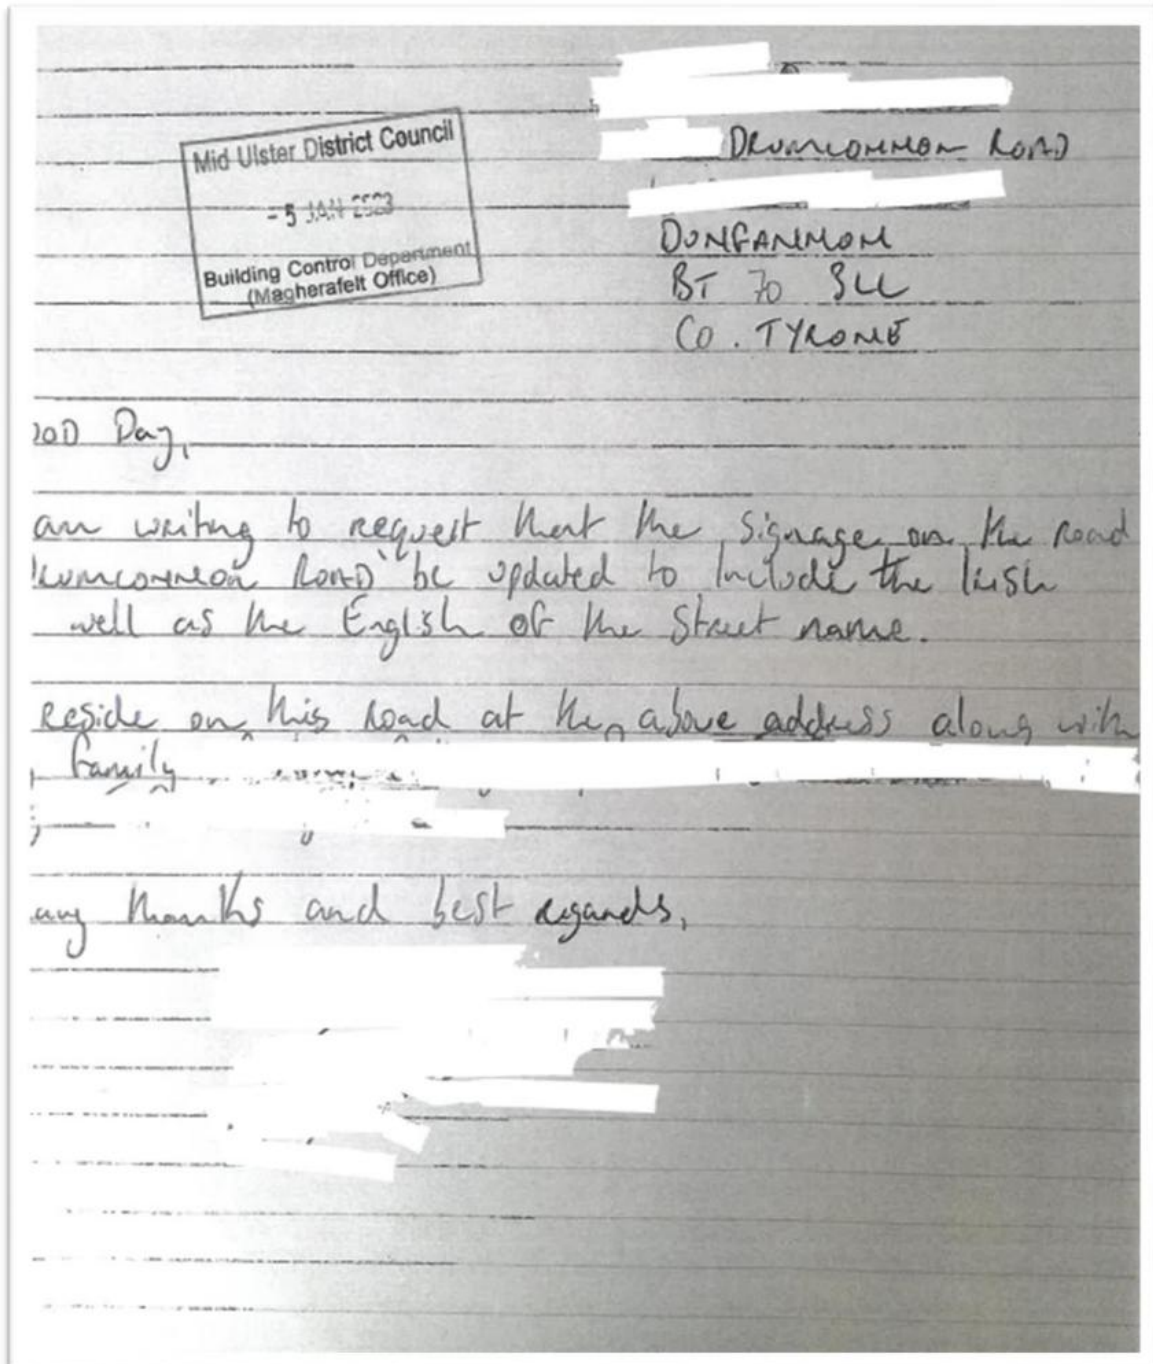 Mid Ulster District Council
- 5 JAN 2023
Building Control Department
(Magherafelt Office)
DRUMCONNOR ROAD
DUNGANNON
BT 70 3LL
Co. TYRONE
OOD Day,
am writing to request that the signage on the road
Road be updated to Include the Irish
well as the English of the Street name.
reside on this road at the above address along with
family
any thanks and best regards,